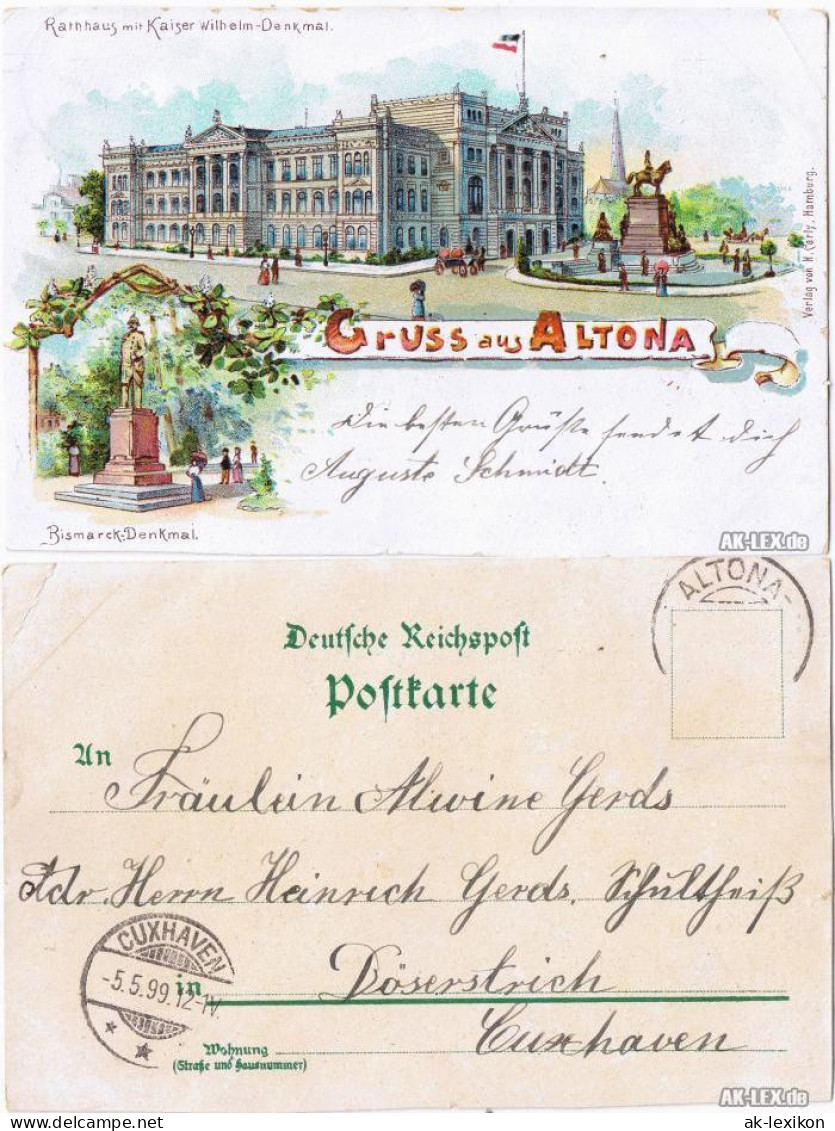 Rathhaus mit Kaiser Wilhelm-Denkmal.
Verlag von H. Carly, Hamburg.
Gruss aus Altona
Die besten Grüße sendet dich
Auguste Schmidt.
Bismarck-Denkmal.
AK-LEX.de
ALTONA-
Deutsche Reichspost
Postkarte
An Fräulein Alwine Gerds
Adr. Herrn Heinrich Gerds, Schultheiß
CUXHAVEN
-5.5.99.12-1V
in Döserstrich
Cuxhaven
Wohnung
(Straße und Hausnummer)
AK-LEX.de
www.delcampe.net
ak-lexikon